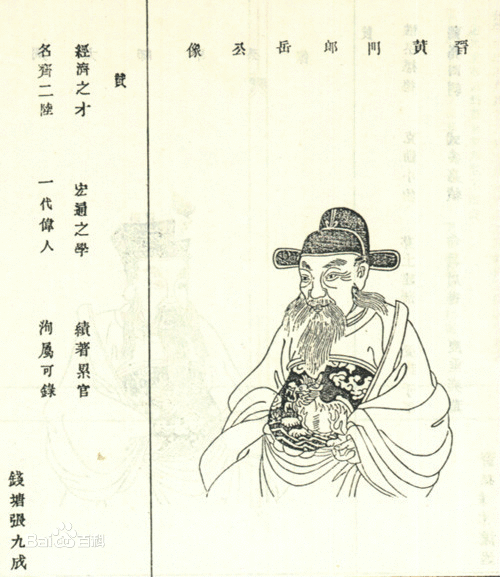 晉黃門郎岳公像
贊
經濟之才 宏通之學 績著累官
名齊二陸 一代偉人 洵屬可錄
錢塘張九成
Bai百科